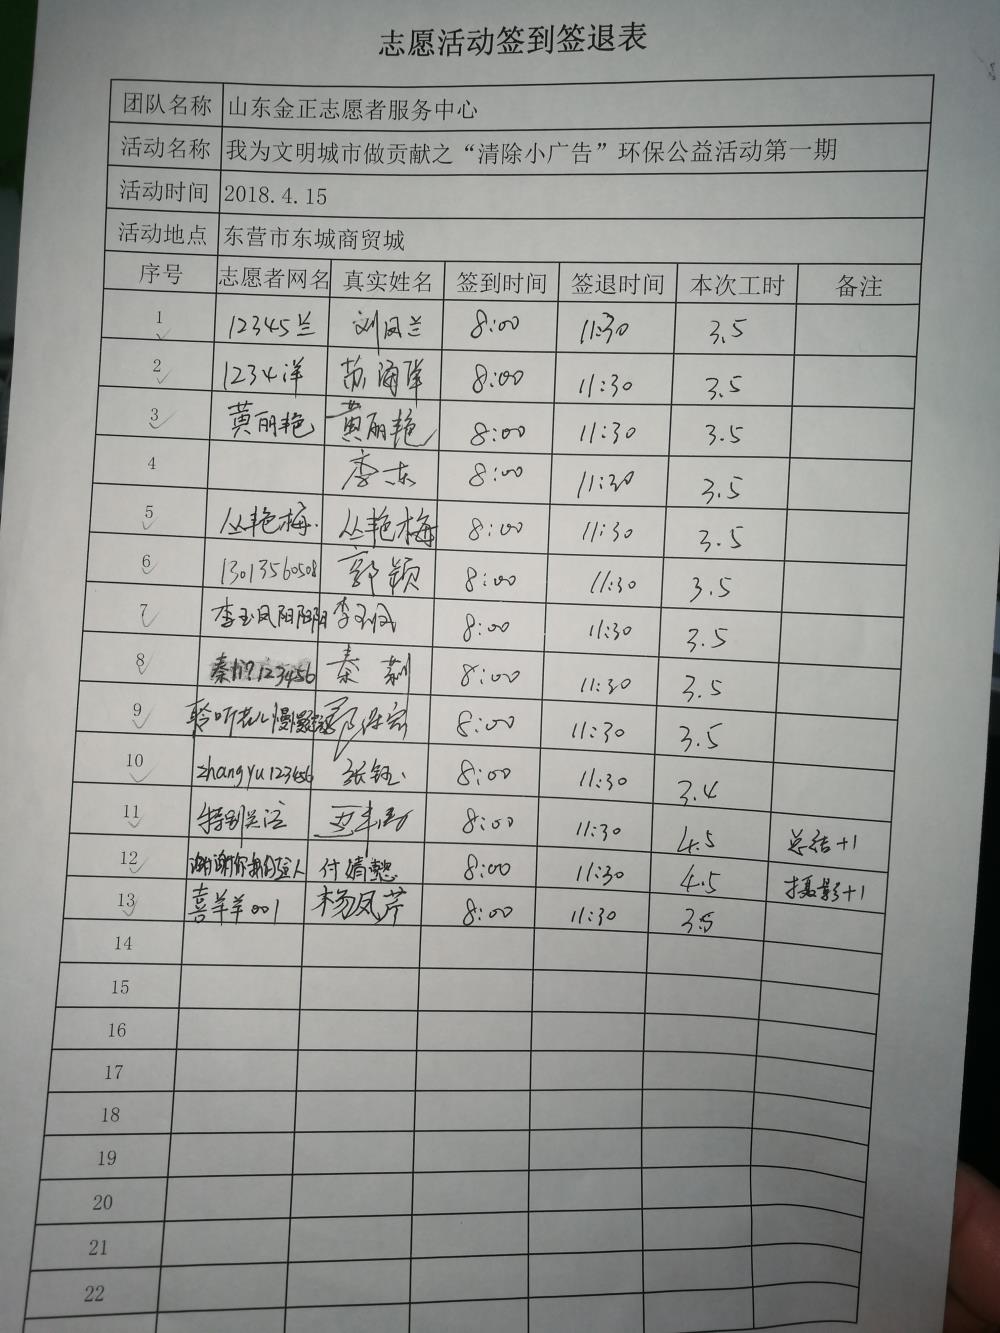 志愿活动签到签退表
团队名称 山东金正志愿者服务中心
活动名称 我为文明城市做贡献之“清除小广告”环保公益活动第一期
活动时间 2018.4.15
活动地点 东营市东城商贸城
序号 志愿者网名 真实姓名 签到时间 签退时间 本次工时 备注
1 12345兰 刘凤兰 8:00 11:30 3.5
2 1234洋 苏海洋 8:00 11:30 3.5
3 黄丽艳 黄丽艳 8:00 11:30 3.5
4 李东 8:00 11:30 3.5
5 丛艳梅 丛艳梅 8:00 11:30 3.5
6 13013560508 郭颖 8:00 11:30 3.5
7 李玉凤阳阳阳 李玉凤 8:00 11:30 3.5
8 123456 秦 8:00 11:30 3.5
9 聆听花儿慢慢 8:00 11:30 3.5
10 zhangyu123456 张钰 8:00 11:30 3.4
11 特别关注 8:00 11:30 4.5 总结+1
12 谢谢你我的主人 付婧懿 8:00 11:30 4.5 摄影+1
13 喜羊羊001 杨凤芹 8:00 11:30 3.5
14
15
16
17
18
19
20
21
22